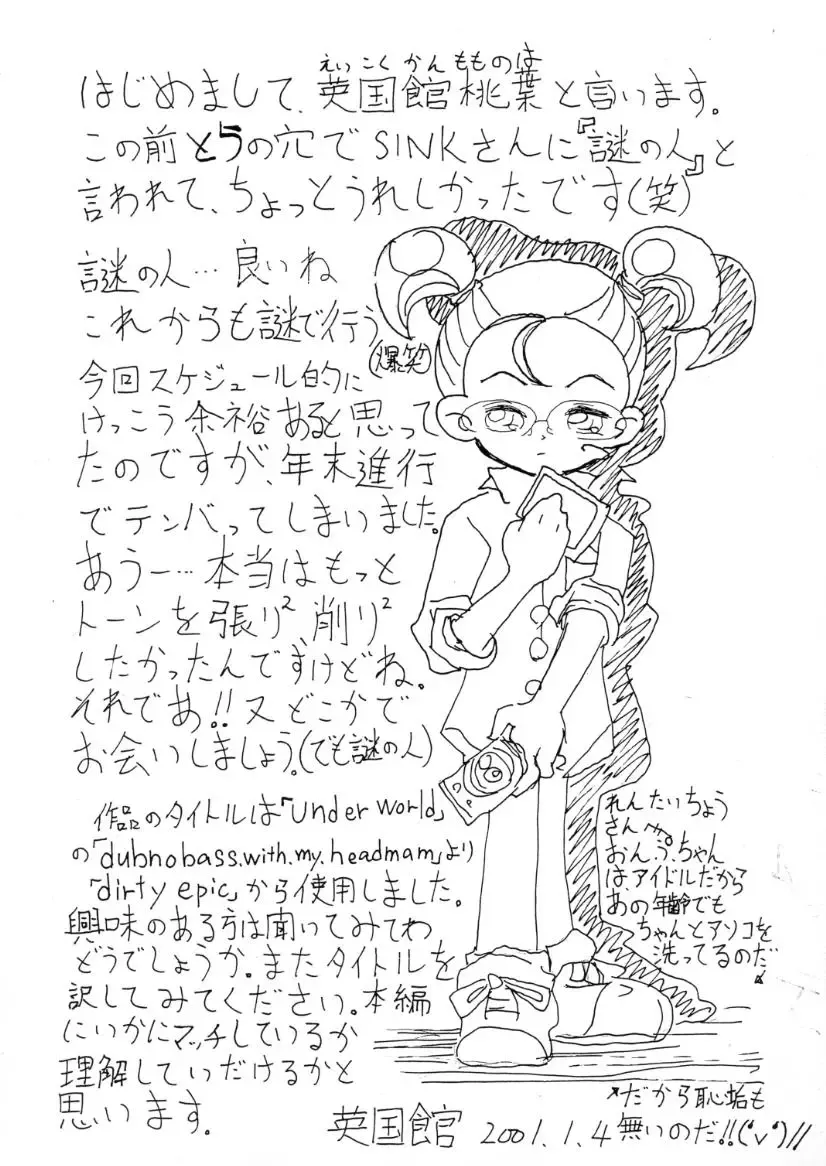 はじめまして、英国館桃葉と言います。
えいこくかんもものは
この前とらの穴でSINKさんに『謎の人』と
言われて、ちょっとうれしかったです(笑)
謎の人…良いね
これからも謎で行う
(爆笑)
今回スケジュール的に
けっこう余裕あると思って
たのですが、年末進行
でテンパってしまいました。
あうー…本当はもっと
トーンを張り²、削り²
したかったんですけどね。
それであ!!又どこかで
お会いしましょう。(でも謎の人)
作品のタイトルは「Under World」
の「dubnobass.with.my.headmam」より
「dirty epic」から使用しました。
興味のある方は聞いてみてわ
どうでしょうか。またタイトルを
訳してみてください。本編
にいかにマッチしているか
理解していだけるかと
思います。
英国館 2001.1.4